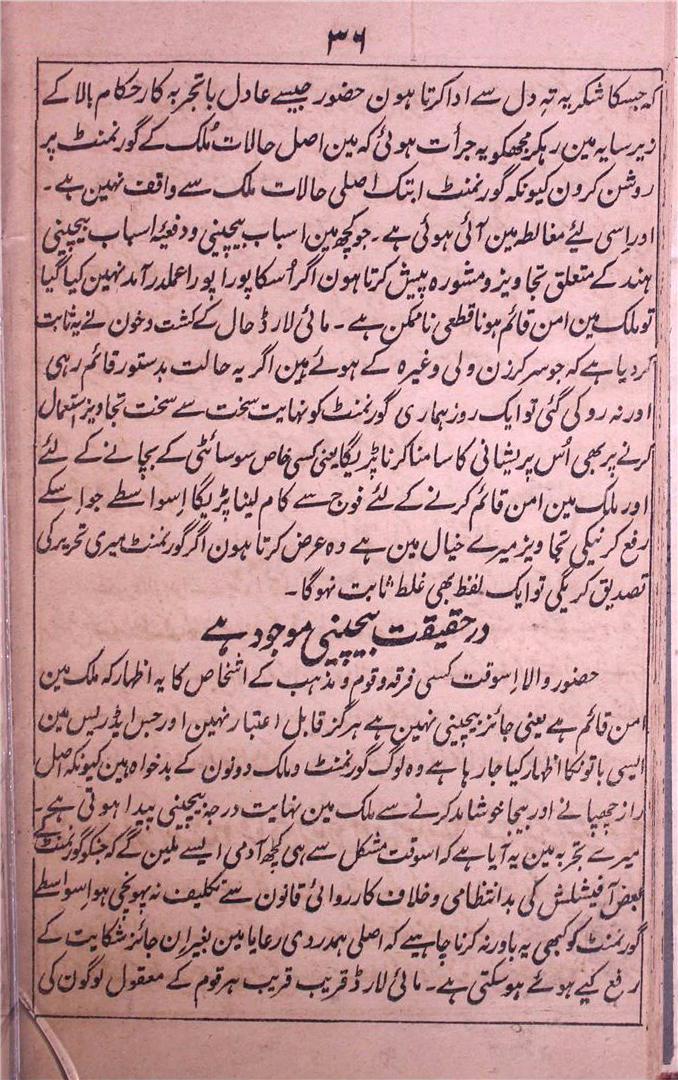 ۳۶
کہ جسکا شکریہ تہِ دل سے ادا کرتا ہون حضور جیسے عادل باتجربہ کار حکام بالا کے
زیر سایہ مین رہکر مجھکو یہ جرأت ہوئی کہ مین اصل حالات مُلک کے گورنمنٹ پر
روشن کرون کیونکہ گورنمنٹ ابتک اصلی حالات ملک سے واقف نہین ہے۔
اور اِسی لئے مغالطہ مین آئی ہوئی ہے۔ جو کچھ مین اسباب بیچینی و دفعیۂ اسباب بیچینی
ہند کے متعلق تجاویز و مشورہ پیش کرتا ہون اگر اُسکا پورا پورا عملدرآمد نہین کیا گیا
تو ملک مین امن قائم ہونا قطعی ناممکن ہے۔ مائی لارڈ حال کے کشت و خون نے یہ ثابت
کر دیا ہے کہ جو سر کرزن ولی وغیرہ کے ہوئے ہین اگر یہ حالت بدستور قائم رہی
اور نہ روکی گئی تو ایک روز ہماری گورنمنٹ کو نہایت سخت سے سخت تجاویز استعمال
کرنے پر بھی اُس پریشانی کا سامنا کرنا پڑیگا یعنی کسی خاص سوسائٹی کے بچانے کے لئے
اور ملک مین امن قائم کرنے کے لئے فوج سے کام لینا پڑیگا اِسواسطے جو اِسکے
رفع کرنیکی تجاویز میرے خیال مین ہے وہ عرض کرتا ہون اگر گورنمنٹ میری تحریر کی
تصدیق کریگی تو ایک لفظ بھی غلط ثابت نہوگا۔
در حقیقت بیچینی موجود ہے
حضور والا اِسوقت کسی فرقہ و قوم و مذہب کے اشخاص کا یہ اظہار کہ ملک مین
امن قائم ہے یعنی جائز بیچینی نہین ہے ہرگز قابل اعتبار نہین اور جس ایڈریس مین
ایسی باتونکا اظہار کیا جا رہا ہے وہ لوگ گورنمنٹ و ملک دونون کے بدخواہ ہین کیونکہ اصل
راز چھپانے اور بیجا خوشامد کرنے سے ملک مین نہایت درجہ بیچینی پیدا ہوتی ہے۔
میرے تجربہ مین یہ آیا ہے کہ اسوقت مشکل سے ہی کچھ آدمی ایسے ملین گے کہ جنکو گورنمنٹ کے
بعض آفیشلس کی بدانتظامی و خلاف کارروائی قانون سے تکلیف نہ پہونچی ہو اِسواسطے
گورنمنٹ کو کبھی یہ باور نہ کرنا چاہیے کہ اصلی ہمدردی رعایا مین بغیر اِن جائز شکایت کے
رفع کیے ہوئے ہو سکتی ہے۔ مائی لارڈ قریب قریب ہر قوم کے معقول لوگون کی